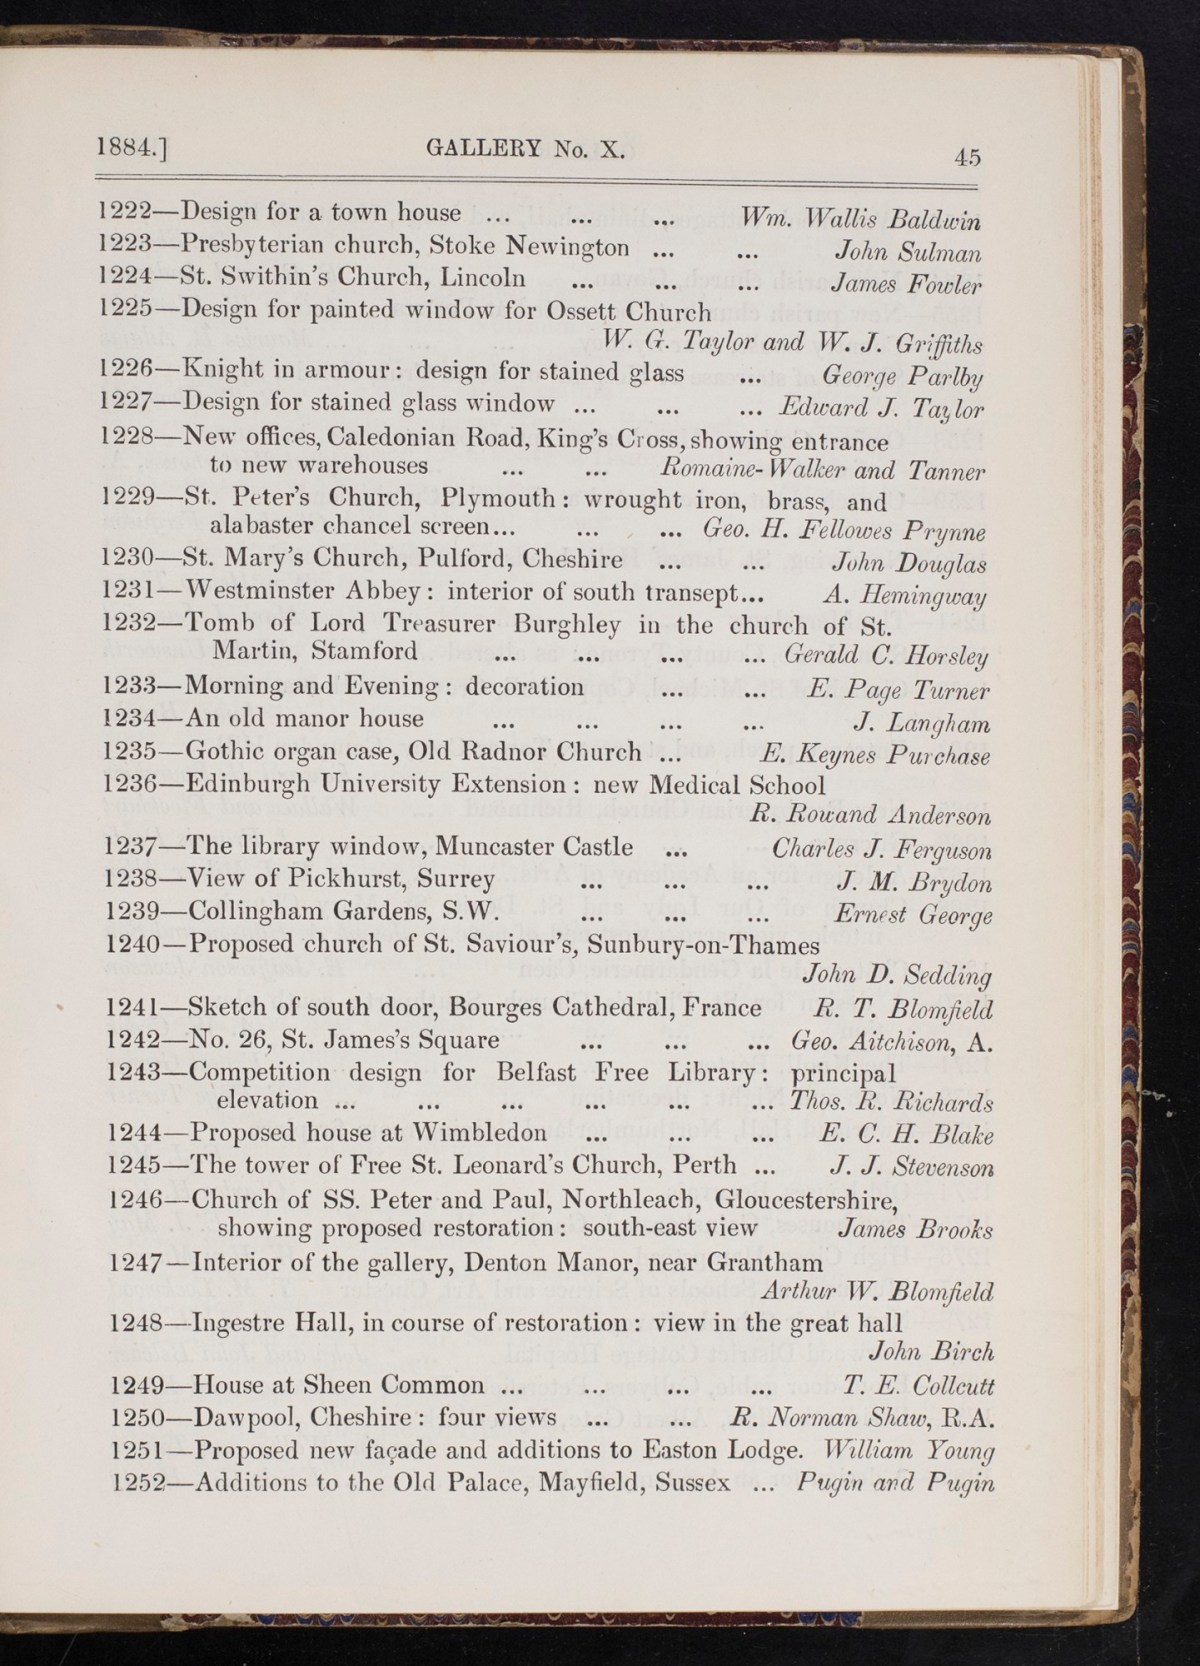 1884.] GALLERY No. X. 45
1222—Design for a town house ... ... ... Wm. Wallis Baldwin
1223—Presbyterian church, Stoke Newington ... ... John Sulman
1224—St. Swithin's Church, Lincoln ... ... ... James Fowler
1225—Design for painted window for Ossett Church
W. G. Taylor and W. J. Griffiths
1226—Knight in armour: design for stained glass ... George Parlby
1227—Design for stained glass window ... ... ... Edward J. Taylor
1228—New offices, Caledonian Road, King's Cross, showing entrance
to new warehouses ... ... Romaine-Walker and Tanner
1229—St. Peter's Church, Plymouth: wrought iron, brass, and
alabaster chancel screen... ... ... Geo. H. Fellowes Prynne
1230—St. Mary's Church, Pulford, Cheshire ... ... John Douglas
1231—Westminster Abbey: interior of south transept... A. Hemingway
1232—Tomb of Lord Treasurer Burghley in the church of St.
Martin, Stamford ... ... ... ... Gerald C. Horsley
1233—Morning and Evening: decoration ... ... E. Page Turner
1234—An old manor house ... ... ... ... J. Langham
1235—Gothic organ case, Old Radnor Church ... E. Keynes Purchase
1236—Edinburgh University Extension: new Medical School
R. Rowand Anderson
1237—The library window, Muncaster Castle ... Charles J. Ferguson
1238—View of Pickhurst, Surrey ... ... ... J. M. Brydon
1239—Collingham Gardens, S.W. ... ... ... Ernest George
1240—Proposed church of St. Saviour's, Sunbury-on-Thames
John D. Sedding
1241—Sketch of south door, Bourges Cathedral, France R. T. Blomfield
1242—No. 26, St. James's Square ... ... ... Geo. Aitchison, A.
1243—Competition design for Belfast Free Library: principal
elevation ... ... ... ... ... ... Thos. R. Richards
1244—Proposed house at Wimbledon ... ... ... E. C. H. Blake
1245—The tower of Free St. Leonard's Church, Perth ... J. J. Stevenson
1246—Church of SS. Peter and Paul, Northleach, Gloucestershire,
showing proposed restoration: south-east view James Brooks
1247—Interior of the gallery, Denton Manor, near Grantham
Arthur W. Blomfield
1248—Ingestre Hall, in course of restoration: view in the great hall
John Birch
1249—House at Sheen Common ... ... ... ... T. E. Collcutt
1250—Dawpool, Cheshire: four views ... ... R. Norman Shaw, R.A.
1251—Proposed new façade and additions to Easton Lodge. William Young
1252—Additions to the Old Palace, Mayfield, Sussex ... Pugin and Pugin